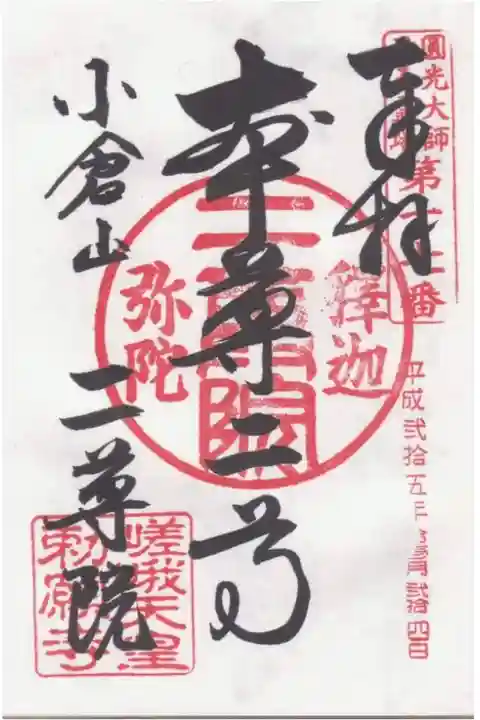 圓光大師
第十七番
奉拝
平成弐拾五年 弐拾四日
本尊二尊
釋迦
二尊院
弥陀
小倉山 二尊院
嵯峨天皇
勅願寺